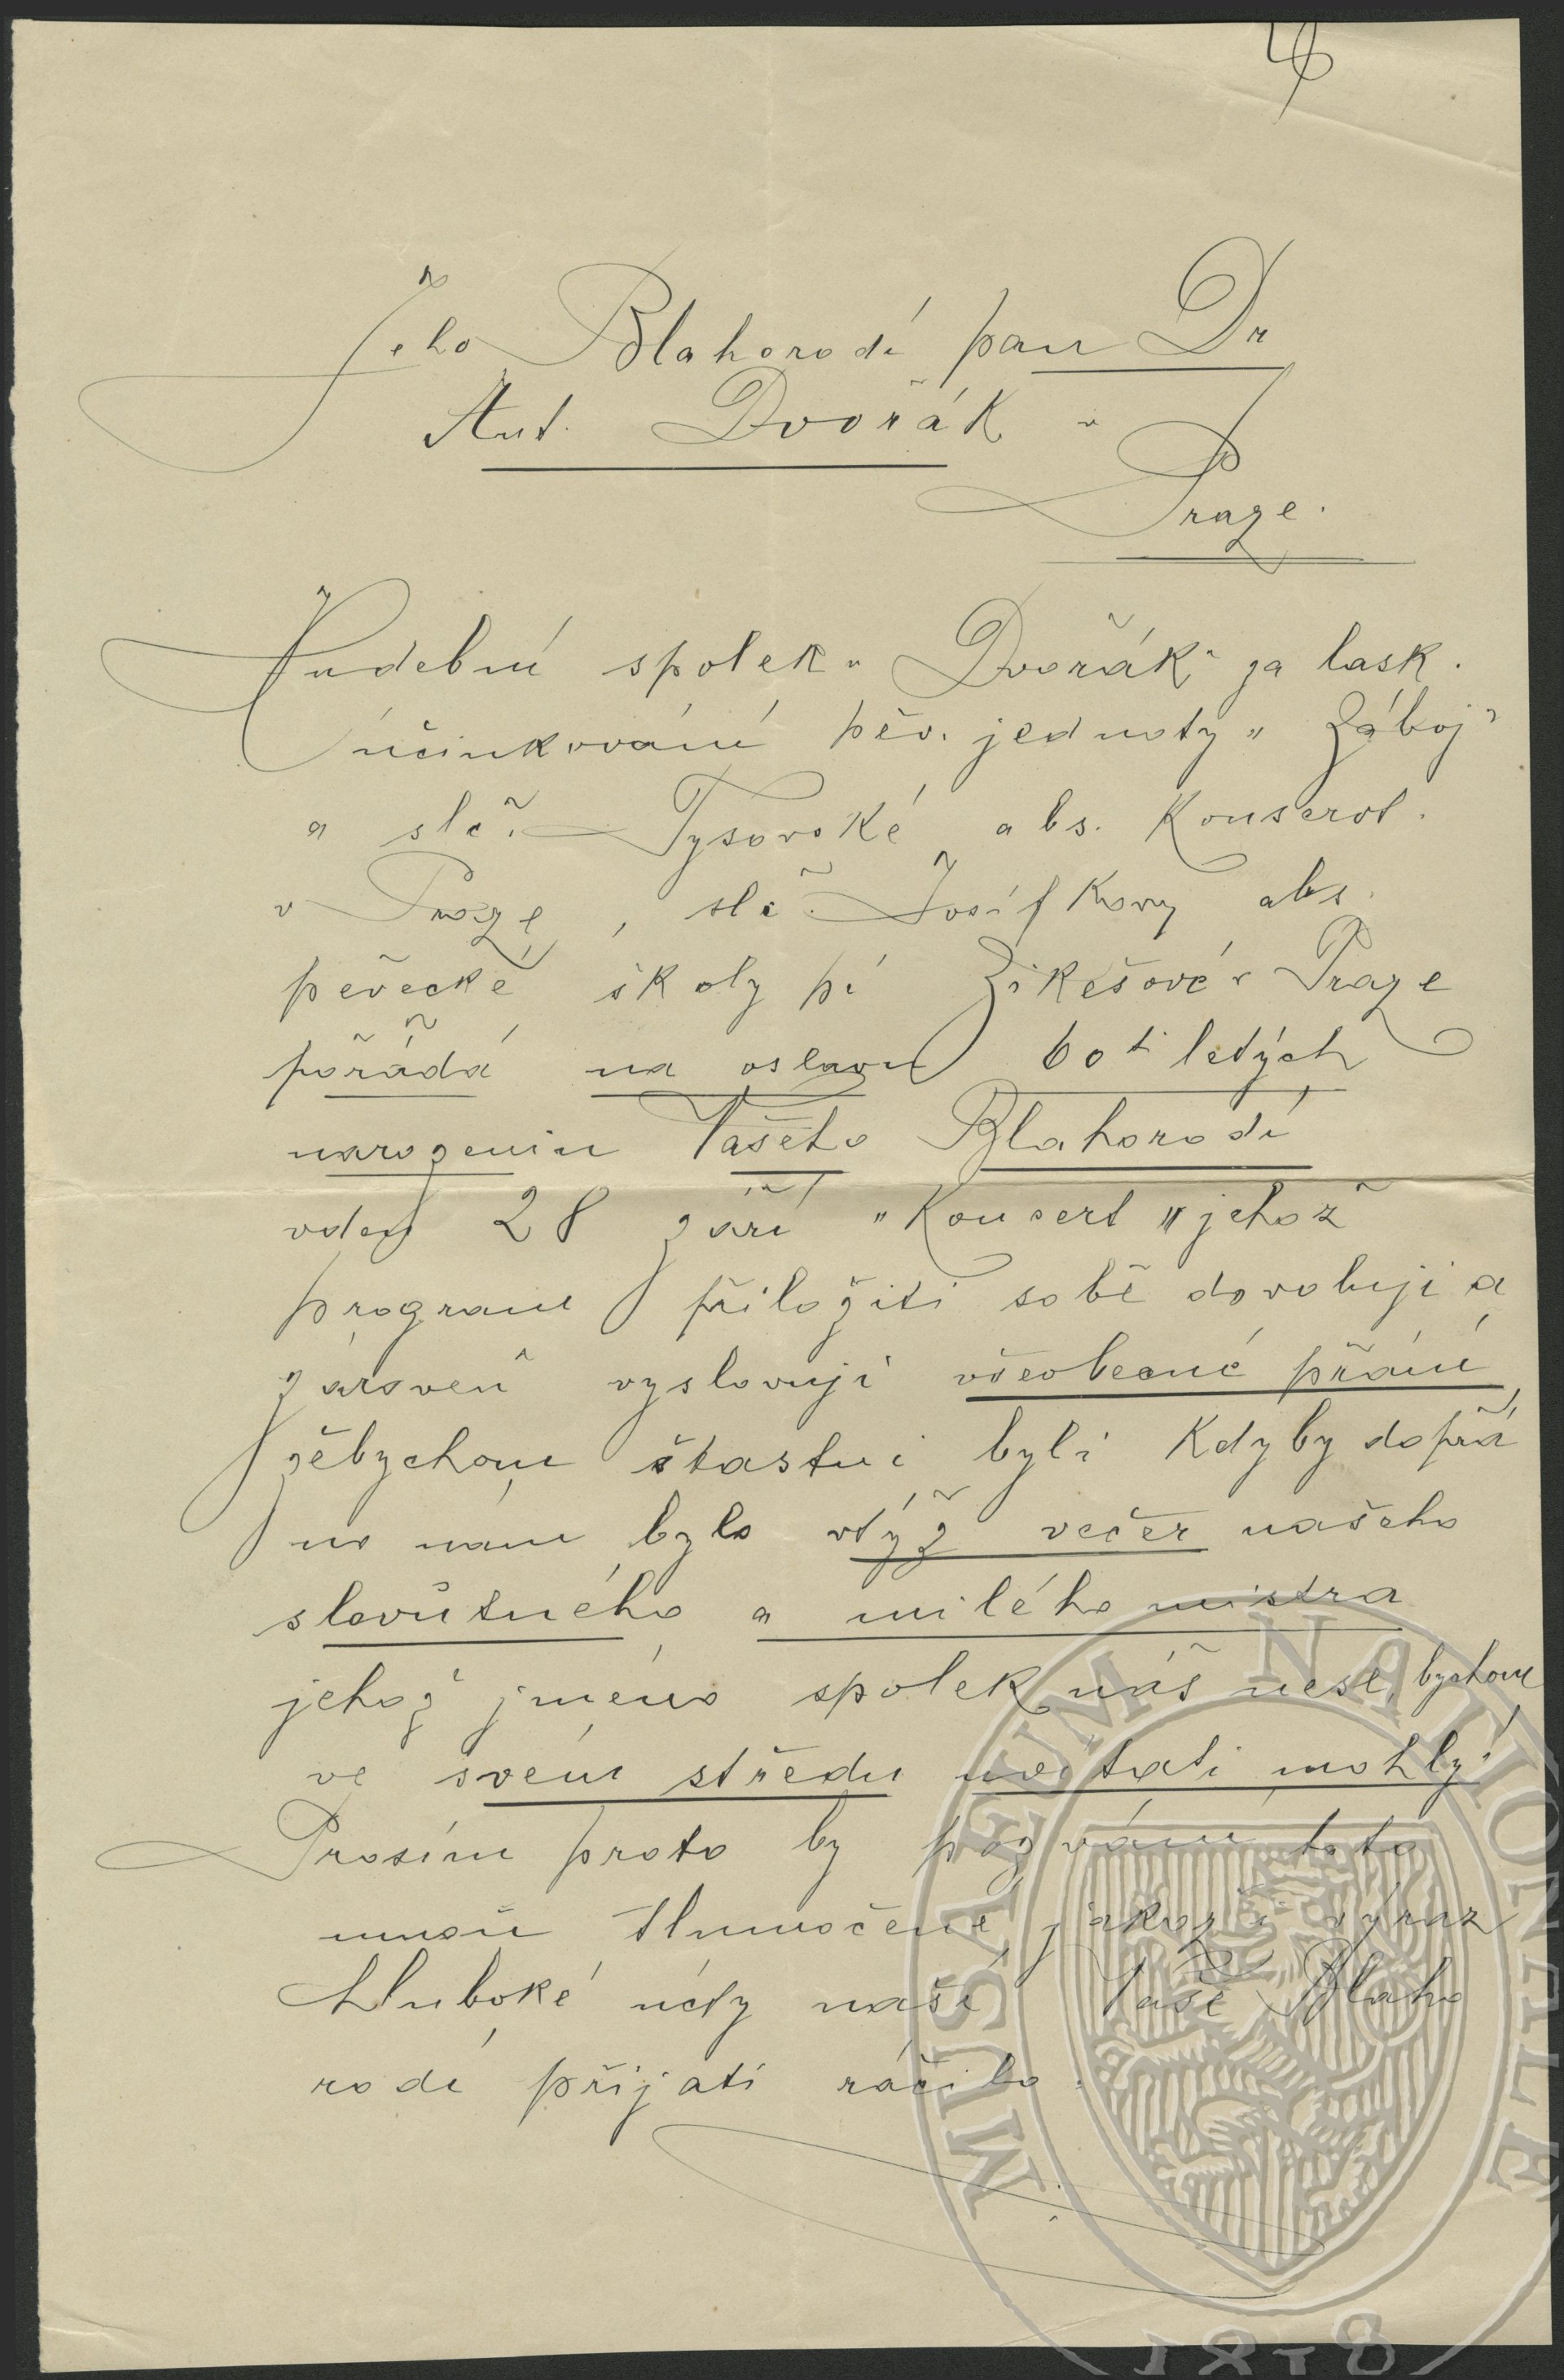 Jeho Blahorodí pan Dr
Ant. Dvořák v
Praze.
Hudební spolek „Dvořák" za lask.
účinkování pěv. jednoty „Záboj"
a slč. Tysovské abs. Konservt.
v Praze, slč. Josífkovy abs.
pěvecké školy pí Zikešové v Praze
pořádá na oslavu 60ti letých
narozenin Vašeho Blahorodí
vden 28 září „Koncert" jehož
program přiložiti sobě dovoluji a
zároveň vyslovuji všeobecné přání,
žebychom štastni byli Kdyby dopřá
no nám bylo vtýž večer našeho
slovůtného a milého mistra
jehož jméno spolek náš nese, bychom
ve svém středu uvítati mohly!
Prosím proto by pozvání toto
mnou tlumočené, jakož i výraz
hluboké úcty naší Vaše Blaho
rodí přijati ráčilo.
MUSAEUM NATIONALE
1818